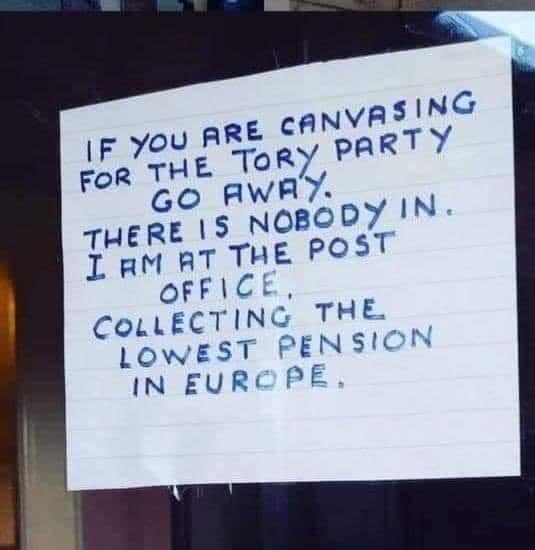 IF YOU ARE CANVASING
FOR THE TORY PARTY
GO AWAY.
THERE IS NOBODY IN.
I AM AT THE POST
OFFICE,
COLLECTING THE
LOWEST PENSION
IN EUROPE.